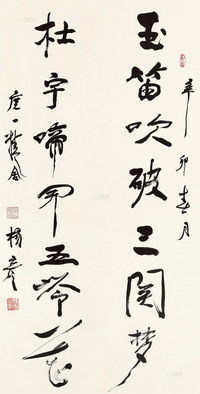 玉笛吹破三関梦
辛卯春月
杜宇啼开五岭花
杨彦